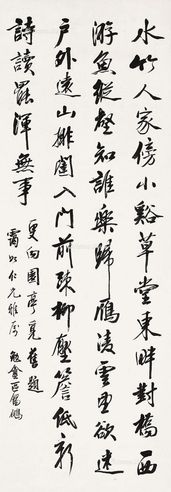 水竹人家傍小谿草堂東畔對橋西
游魚縱壑知誰樂歸鴈凌雲望欲迷
戶外遠山排闥入門前疎柳壓簷低新
詩讀罷渾無事
更向園亭覓舊題
霭如仁兄雅屬